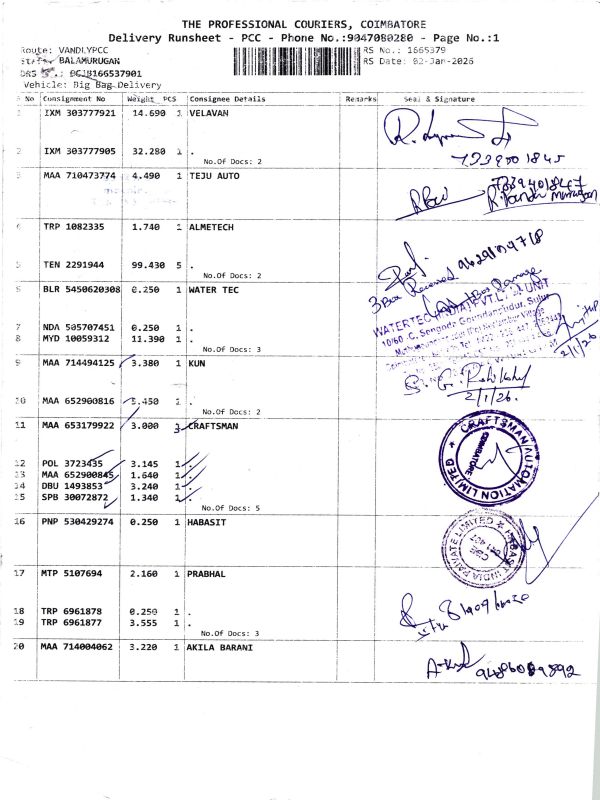 THE PROFESSIONAL COURIERS, COIMBATORE
Delivery Runsheet - PCC - Phone No.:9047080280 - Page No.:1
Route: VANDI,YPCC
RS No.: 1665379
Staff: BALAMURUGAN
RS Date: 02-Jan-2026
DRS
Vehicle: Big Bag Delivery
No Consignment No Weight PCS Consignee Details Remarks Seal & Signature
1 IXM 303777921 14.690 1 VELAVAN
2 IXM 303777905 32.280 1 .
No.Of Docs: 2
3 MAA 710473774 4.490 1 TEJU AUTO
4 TRP 1082335 1.740 1 ALMETECH
5 TEN 2291944 99.430 5 .
No.Of Docs: 2
3 Box Received
6 BLR 5450620308 0.250 1 WATER TEC
7 NDA 505707451 0.250 1 .
8 MYD 10059312 11.390 1 .
No.Of Docs: 3
2/1/26
9 MAA 714494125 3.380 1 KUN
2/1/26.
10 MAA 652900816 5.450 1 .
No.Of Docs: 2
11 MAA 653179922 3.000 CRAFTSMAN
CRAFTSMAN AUTOMATION LIMITED
COIMBATORE
12 POL 3723435 3.145 1 .
13 MAA 652900845 1.640 1 .
14 DBU 1493853 3.240 1 .
15 SPB 30072872 1.340 1 .
No.Of Docs: 5
16 PNP 530429274 0.250 1 HABASIT
HABASIT INDIA PRIVATE LIMITED
17 MTP 5107694 2.160 1 PRABHAL
18 TRP 6961878 0.250 1 .
19 TRP 6961877 3.555 1 .
No.Of Docs: 3
20 MAA 714004062 3.220 1 AKILA BARANI